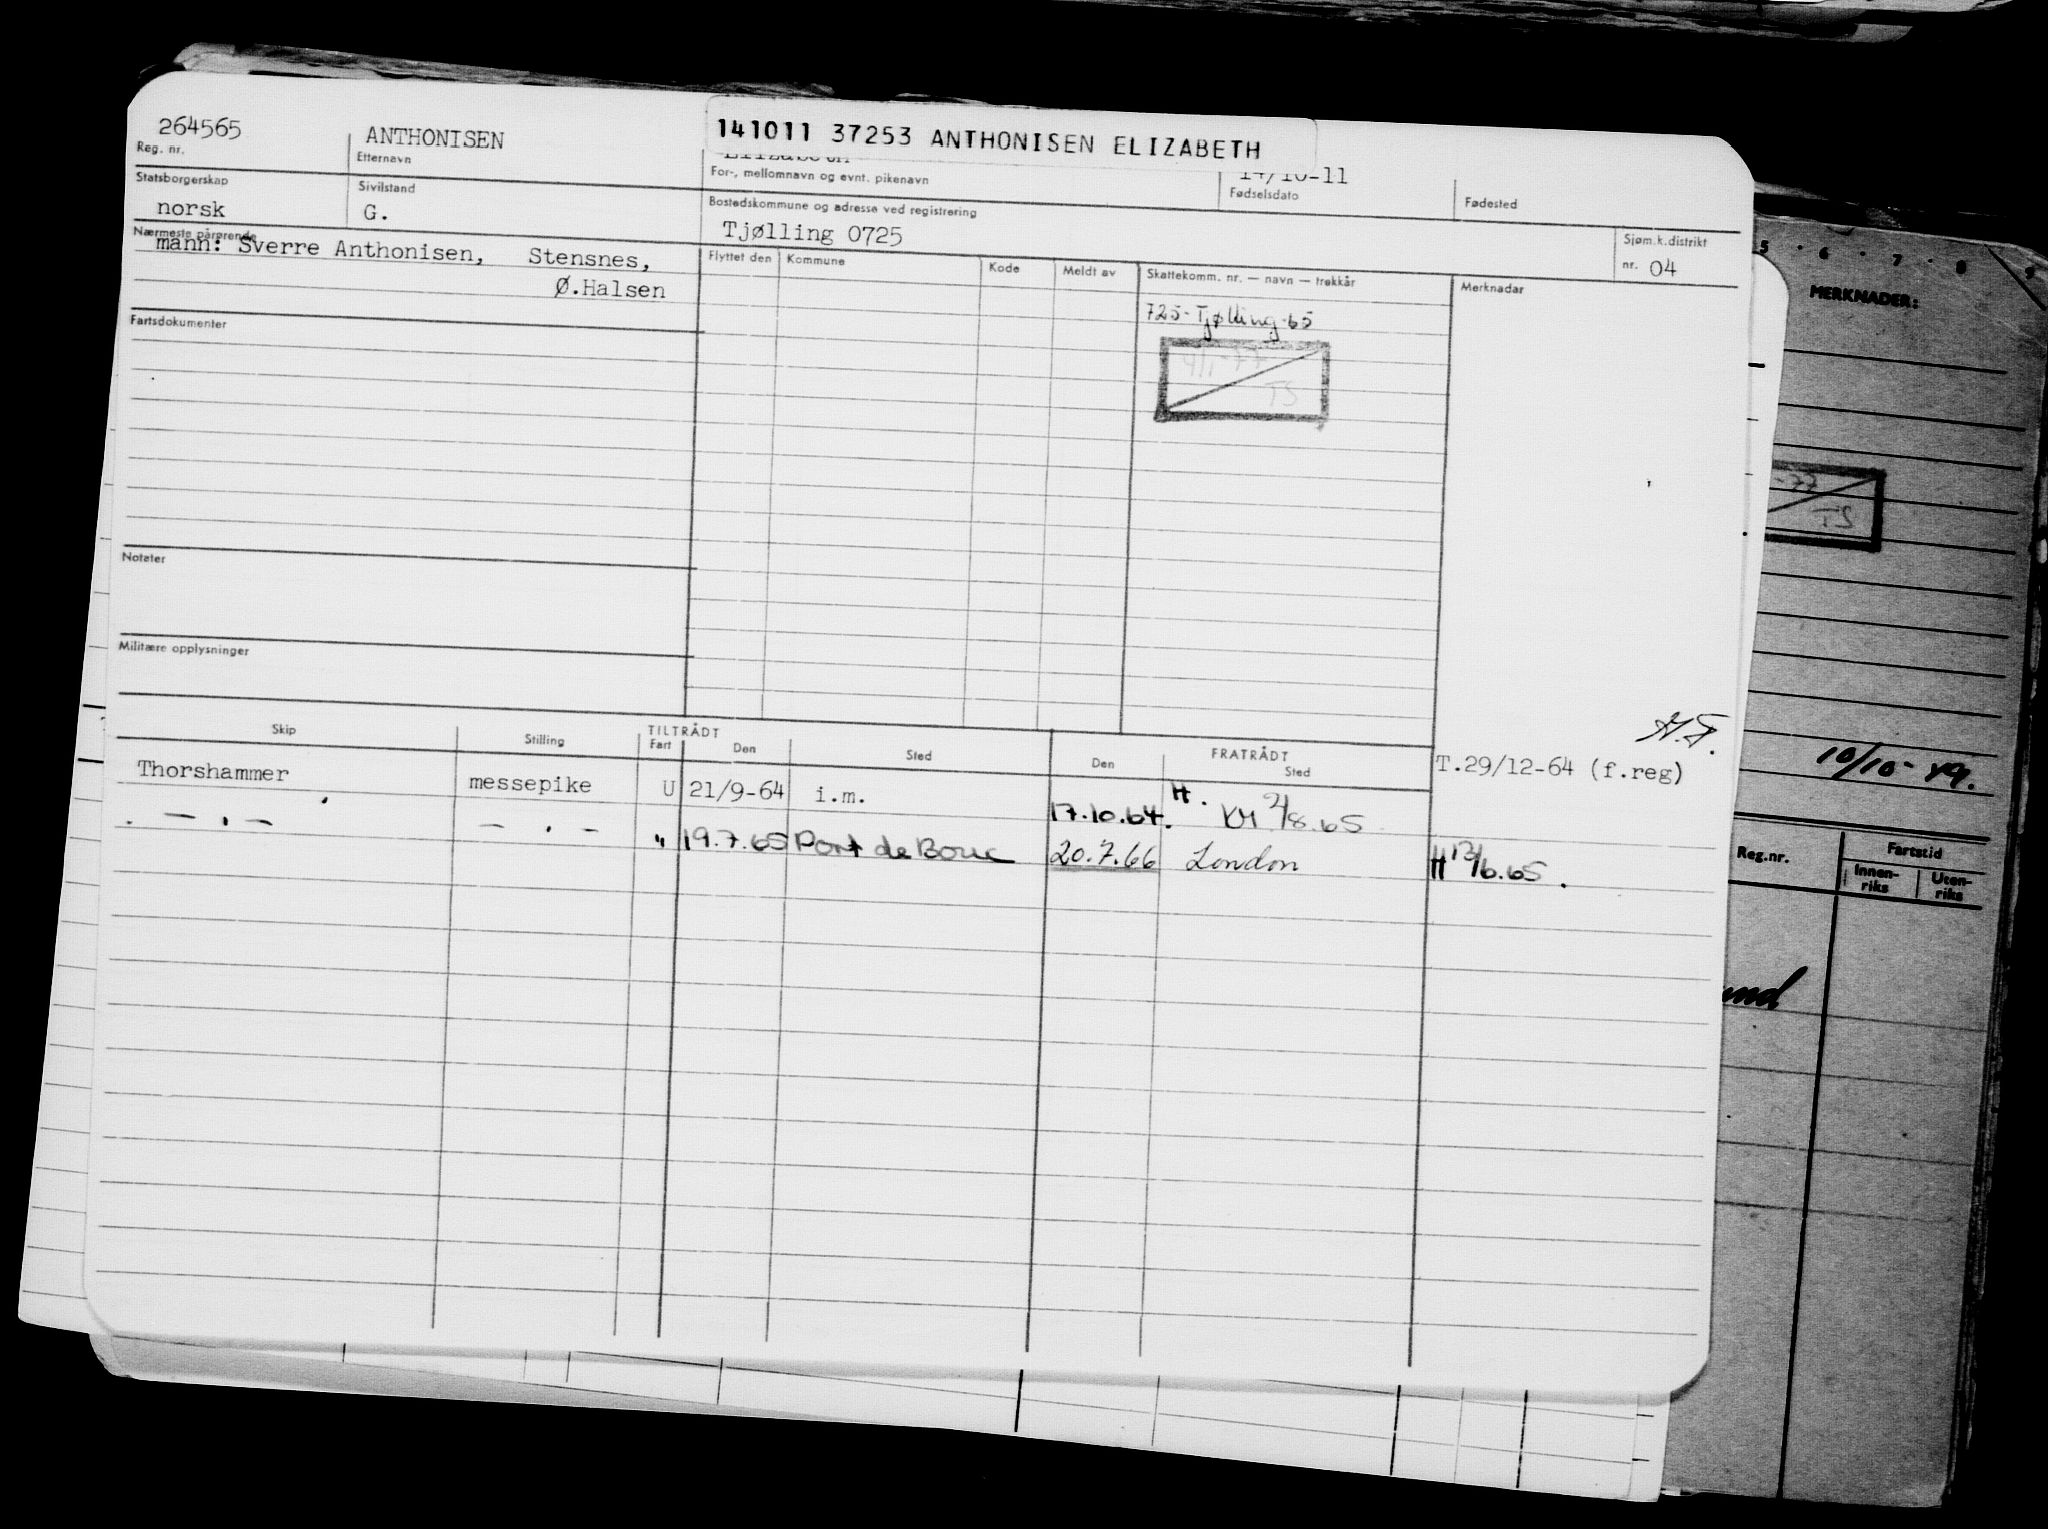 264565
ANTHONISEN
141011 37253 ANTHONISEN ELIZABETH
Reg. nr.
Etternavn
For-, mellomnavn og evnt. pikenavn
14/10-11
Fødselsdato
Fødested
Statsborgerskap
norsk
Sivilstand
G.
Bostedskommune og adresse ved registrering
Tjølling 0725
Sjøm.k.distrikt
nr. 04
Nærmeste pårørende
mann: Sverre Anthonisen, Stensnes,
Ø.Halsen
Flyttet den
Kommune
Kode
Meldt av
Skattekomm. nr. — navn — trekkår
Merknadar
725-Tjølling-65
4/1-77
TS
Fartsdokumenter
Notater
Militære opplysninger
Skip
Stilling
TILTRÅDT
Fart
Den
Sted
FRATRÅDT
Den
Sted
T.29/12-64 (f.reg)
Thorshammer messepike U 21/9-64 i.m. 17.10.64.
— " — — " — " 19.7.65 Port de Bouc 20.7.66 London
5 · 6 · 7 · 8 · 9
MERKNADER:
-77
TS
10/10-49.
Reg.nr.
Fartstid
Innen-
riks
Uten-
riks
und